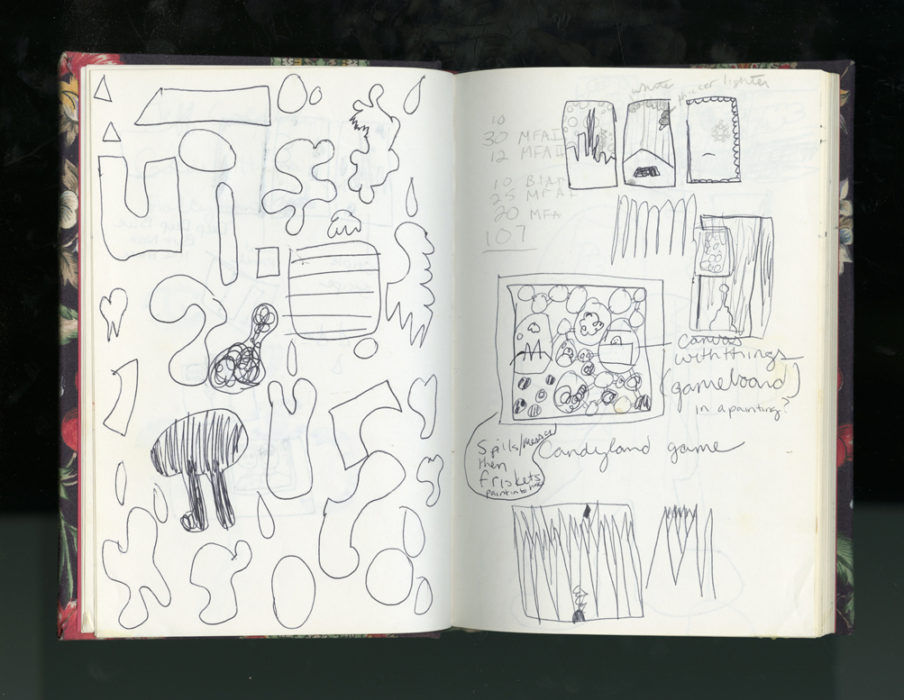 white
lighter
10
30 MFA II
12 MFA II
10
25 MFA
20 MFA
107
canvas
with things
(gameboard)
in a painting?
Candyland game
Spills/
then
friskets